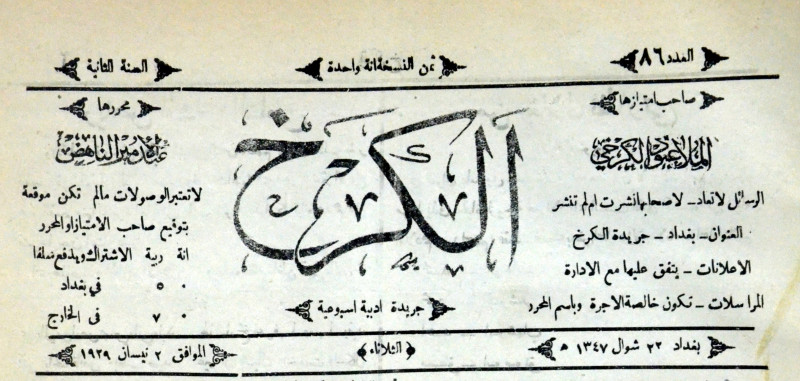 العدد ٨٦
ثمن النسخة انة واحدة
السنة الثانية
صاحب امتيازها
الملا عبود الكرخي
الرسائل لاتعاد ـ لاصحابها نشرت ام لم تنشر
العنوان ـ بغداد ـ جريدة الكرخ
الاعلانات ـ يتفق عليها مع الادارة
المراسلات ـ تكون خالصة الاجرة وباسم المحرر
الكرخ
جريدة ادبية اسبوعية
محررها
عبد الامير الناهض
لاتعتبر الوصولات مالم تكن موقعة
بتوقيع صاحب الامتياز او المحرر
انة ربية الاشتراك ويدفع سلفا
٠ ٥ في بغداد
٠ ٧ فى الخارج
بغداد ٢٢ شوال ١٣٤٧ ه
الثلاثاء
الموافق ٢ نيسان ١٩٢٩